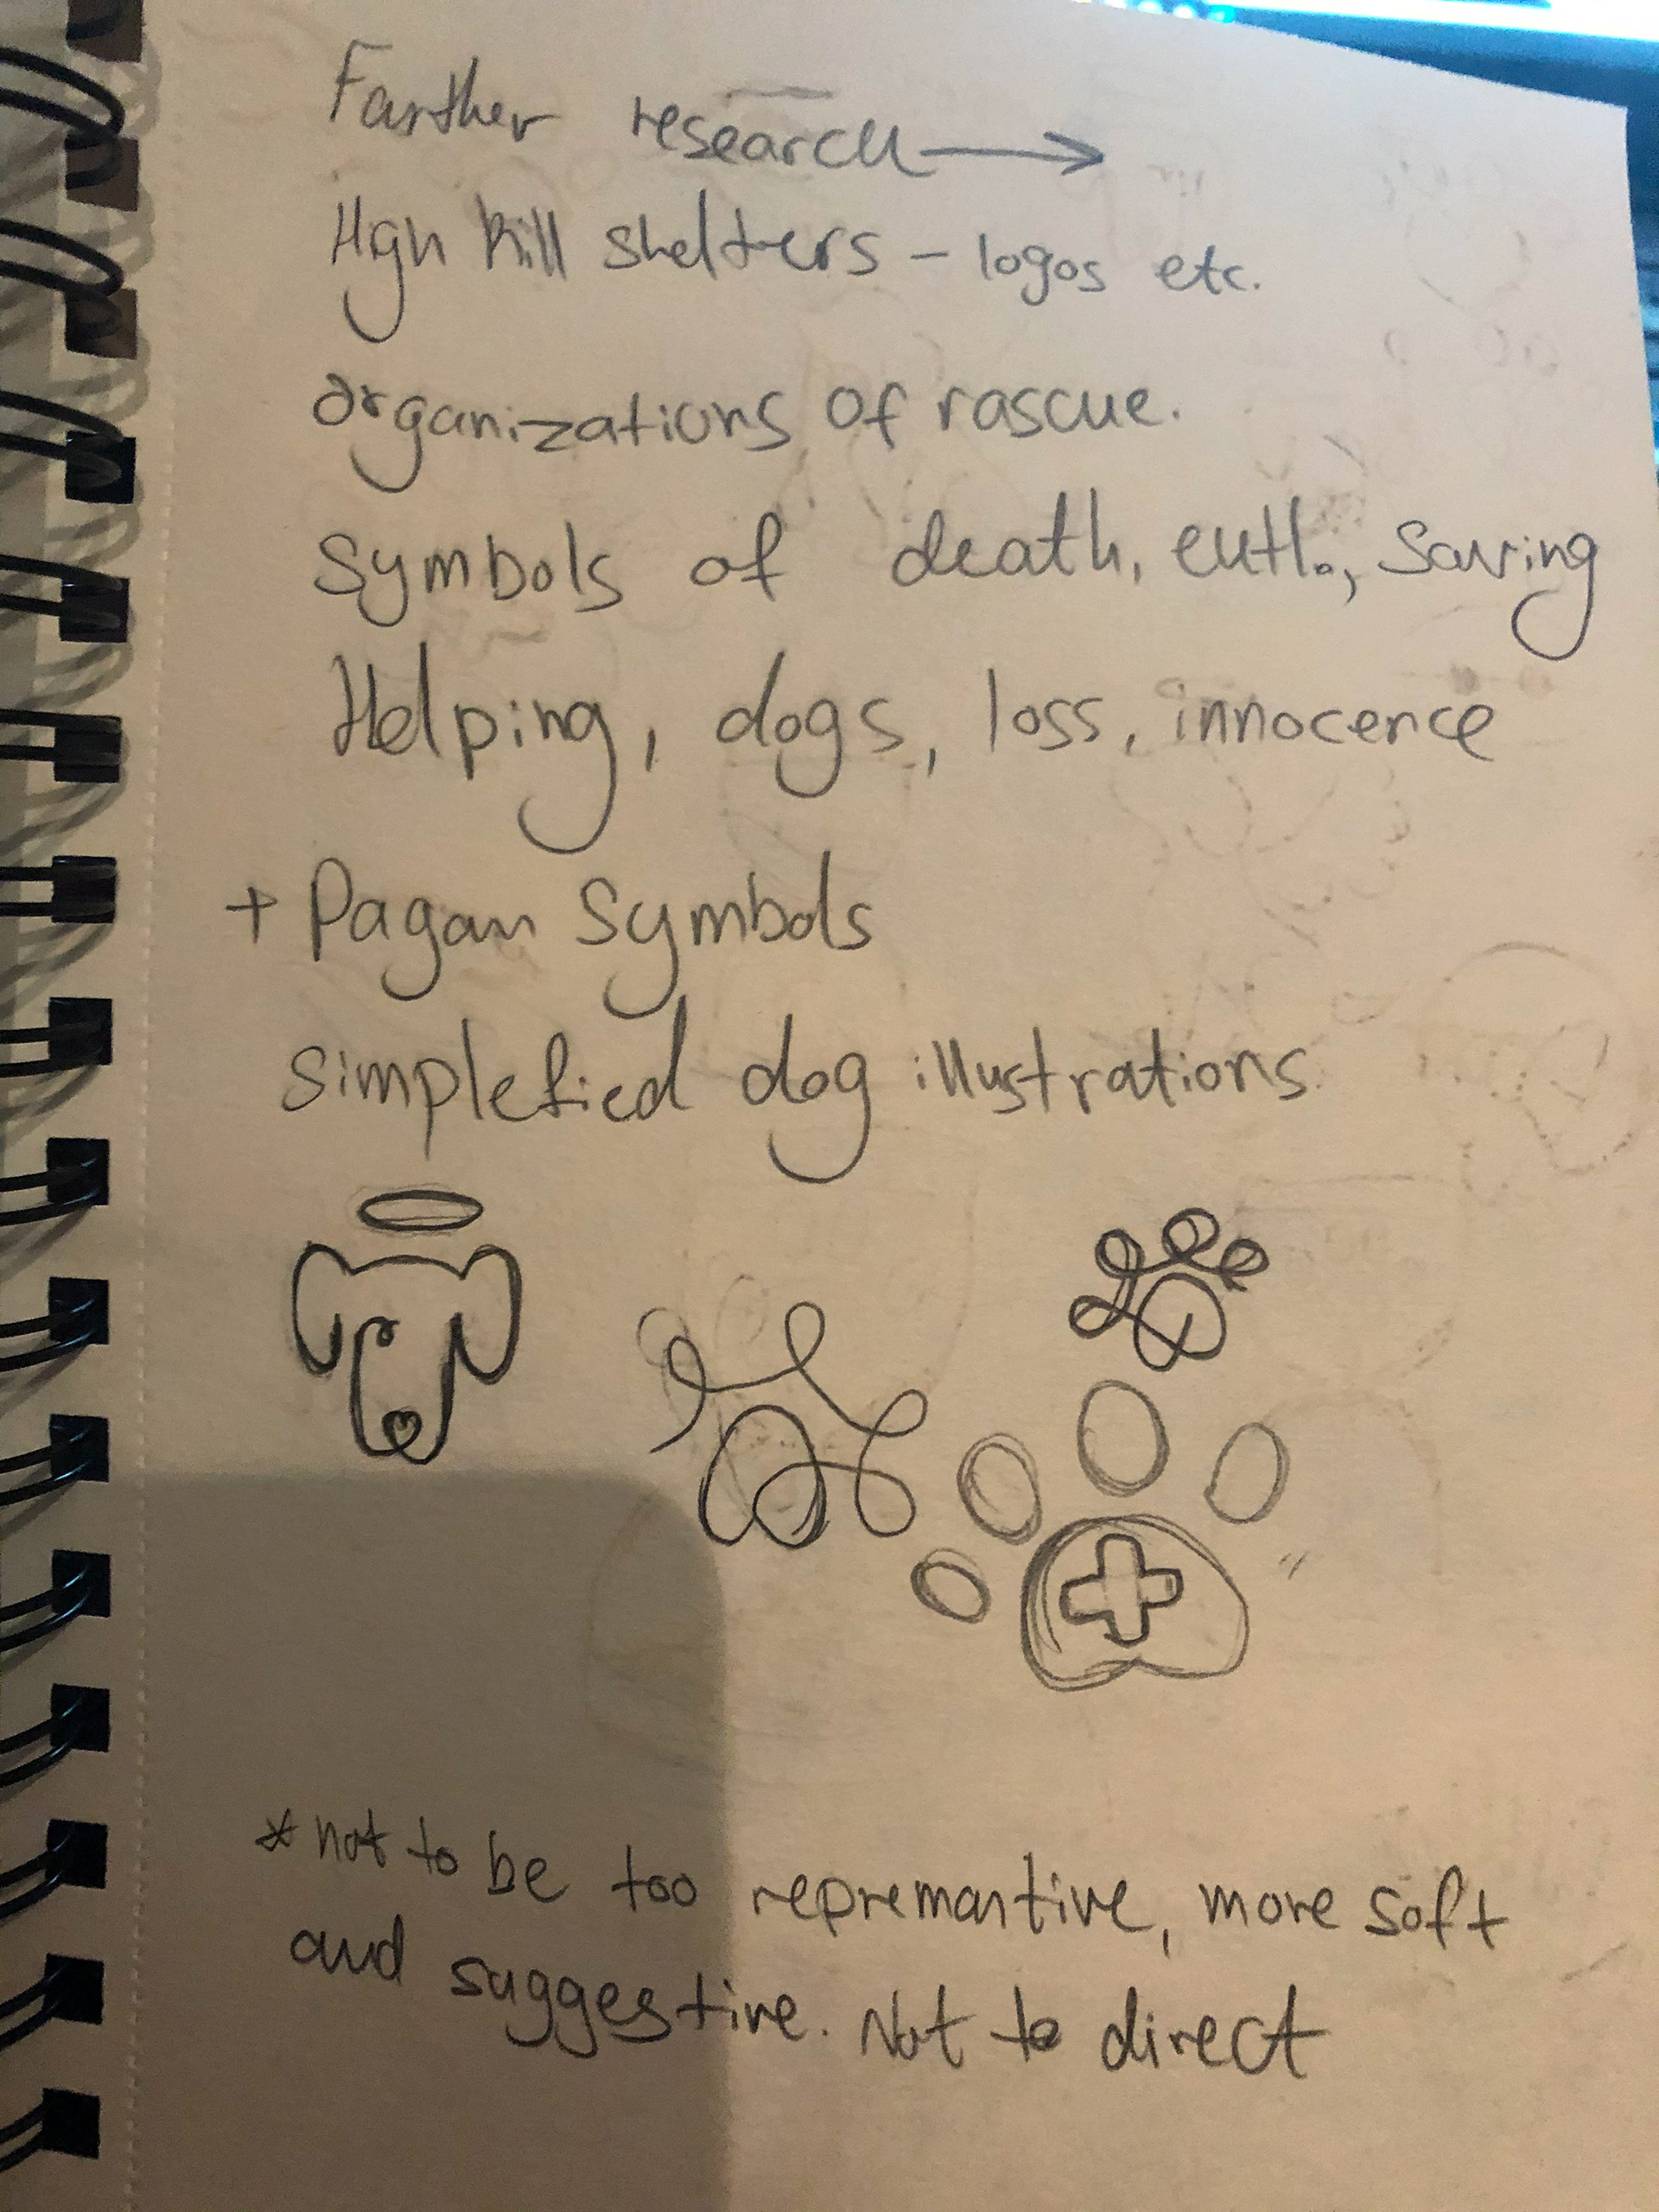 Farther research →
High kill shelters – logos etc.
organizations of rascue.
Symbols of death, euth., saving
Helping, dogs, loss, innocence
+ Pagan Symbols
simplefied dog illustrations.
* not to be too repremantive, more soft
and suggestive. Not to direct